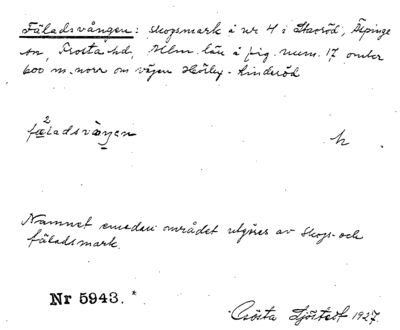 Fäladsvången: skogsmark å nr 4 i Starröd, Äspinge
sn, Frosta hd, Mlm. län å fig. num. 17 omkr
600 m. norr om vägen Hörby - Linderöd
fäladsvången
h
Namnet emedan området utgöres av skogs- och
fäladsmark.
Nr 5943. *
Gösta Sjöstedt 1927.